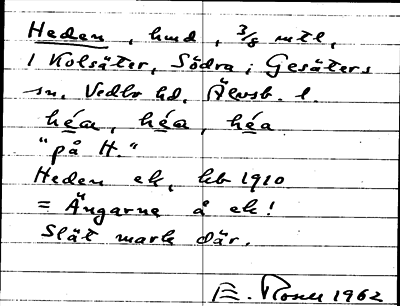 Heden, hmd, 3/8 mtl,
i Kolsäter, Södra i Gesäters
sn, Vedbo hd, Älvsb. l.
héa, héa, héa
"på H."
Heden ek, kb 1910
= Ängarna å ek!
Slät mark där.
E. Rosell 1962